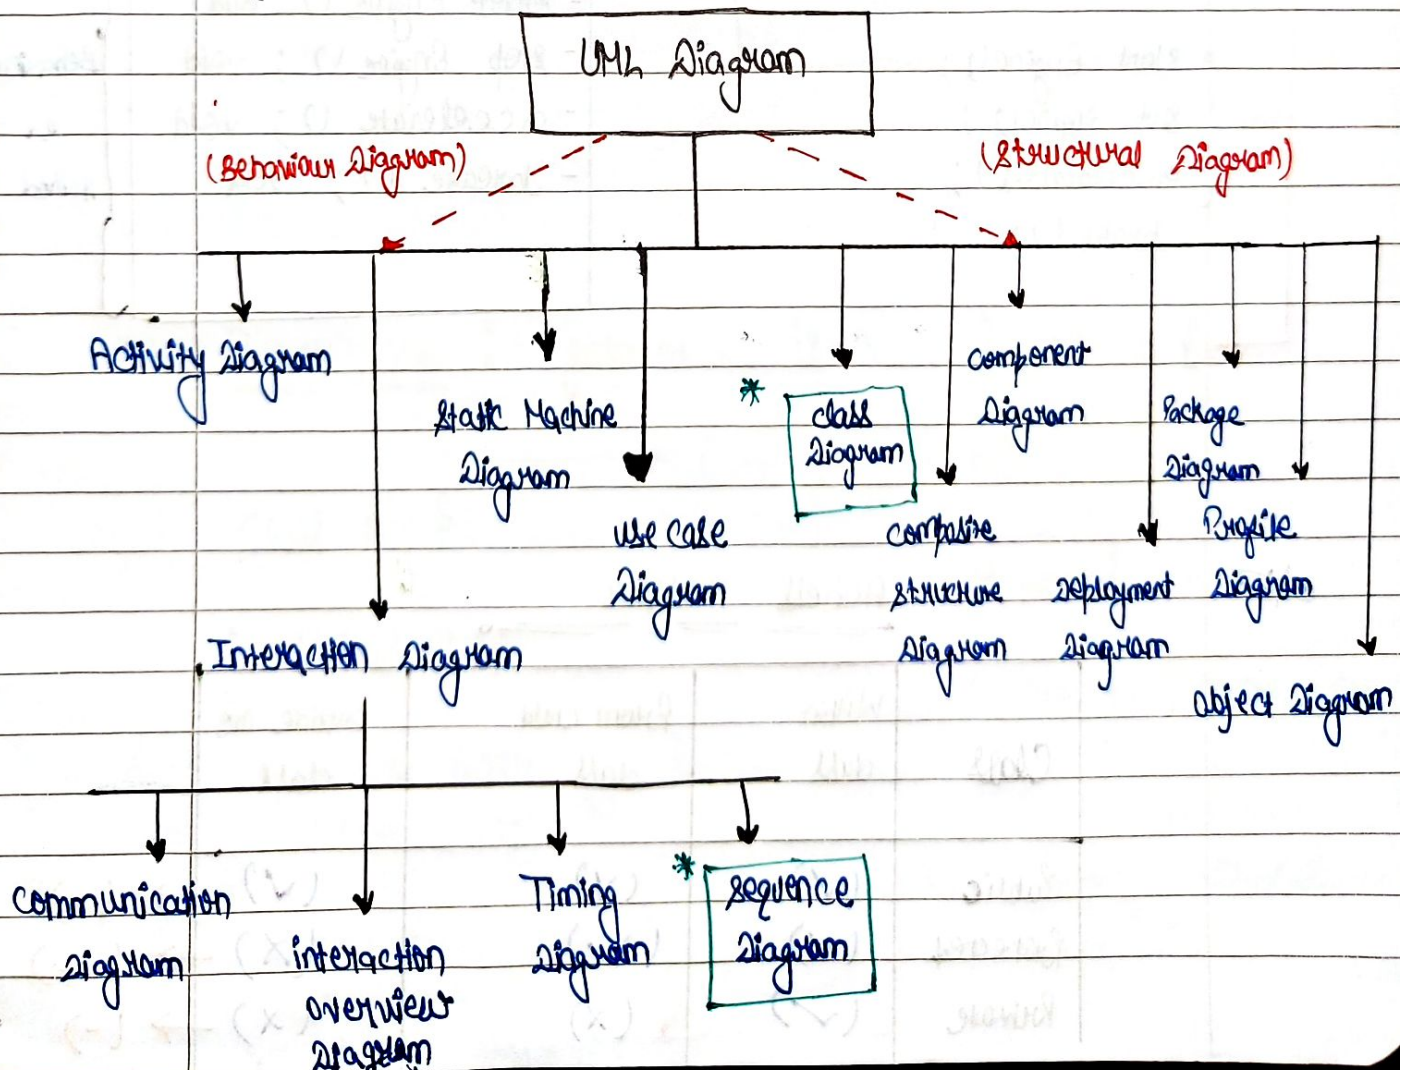 UML Diagram
(Behaviour Diagram)
(Structural Diagram)
Activity Diagram
Static Machine
Diagram
use case
Diagram
*
class
Diagram
component
Diagram
composite
structure
Diagram
Deployment
Diagram
Package
Diagram
Profile
Diagram
Object Diagram
Interaction Diagram
communication
Diagram
interaction
overview
Diagram
Timing
Diagram
*
sequence
Diagram